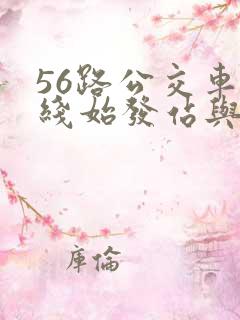 56路公交車
綫始發佔與
庫倫